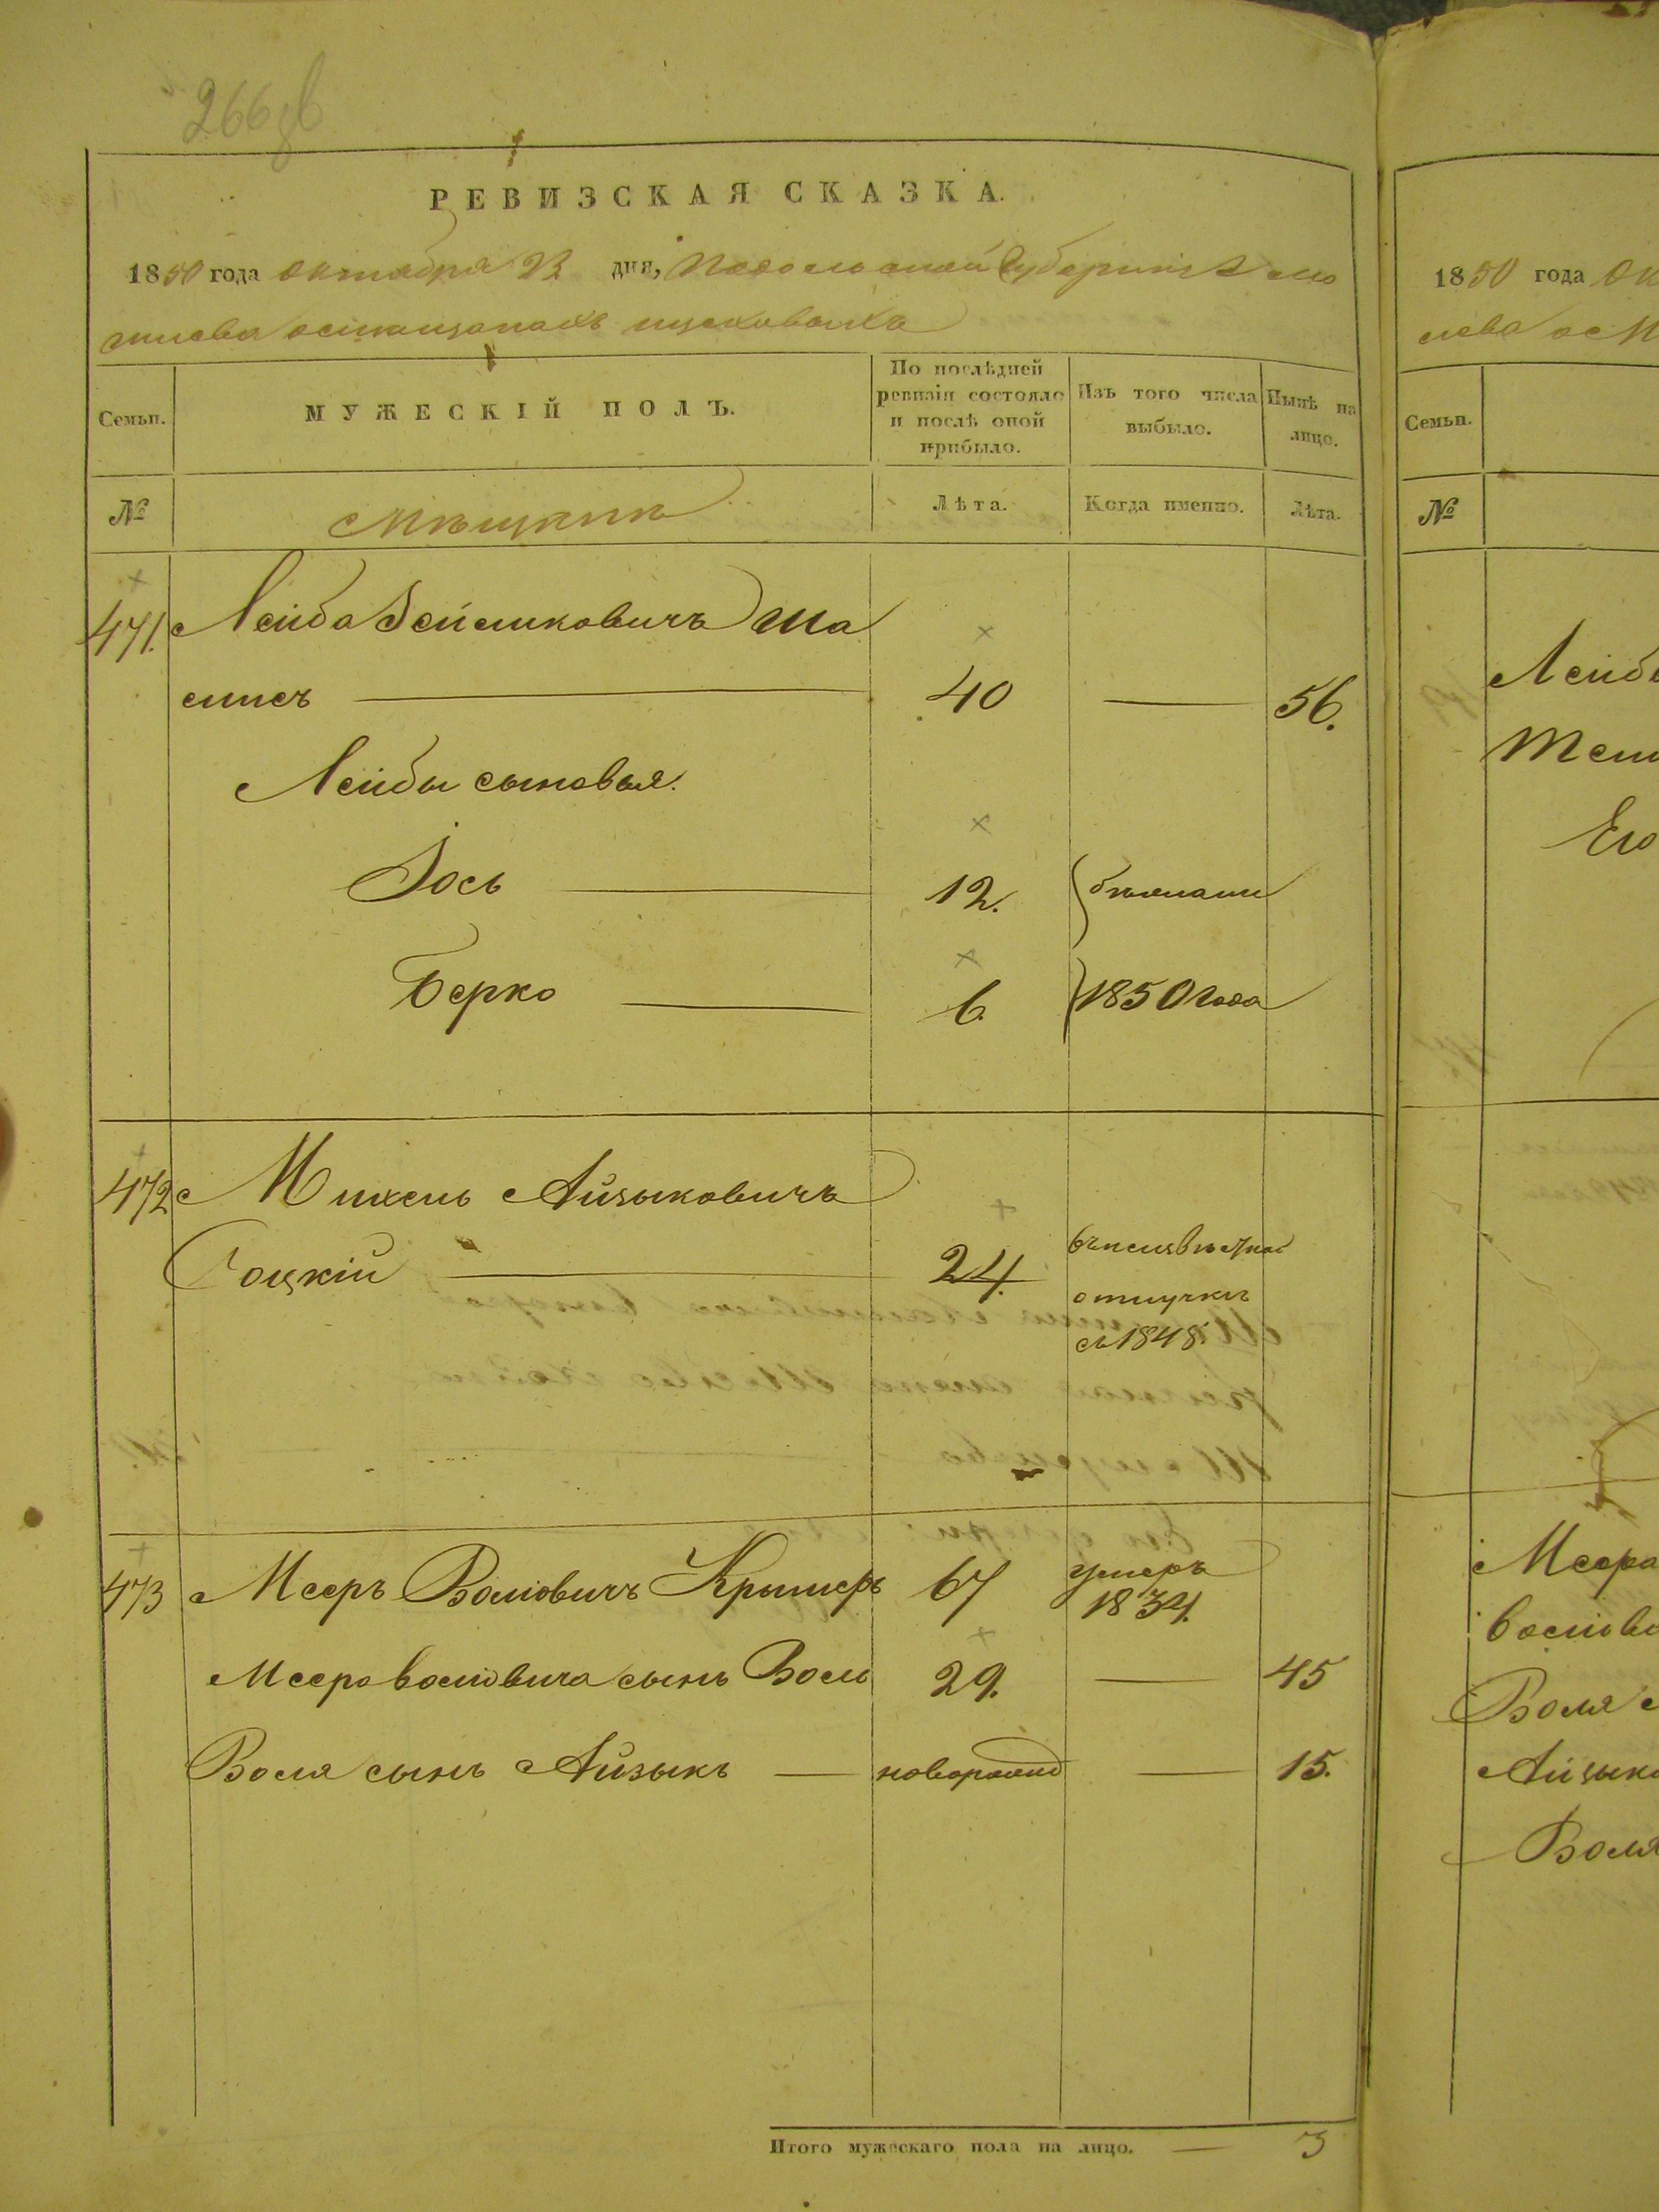 266 об
РЕВИЗСКАЯ СКАЗКА.
1850 года Октября 23 дня, Подольской Губерніи
мѣщанахъ
Семьи.
МУЖЕСКІЙ ПОЛЪ.
По послѣдней ревизіи состояло и послѣ оной прибыло.
Изъ того числа выбыло.
Нынѣ на лицо.
№
Лѣта.
Когда именно.
Лѣта.
471. Лейба Зейликовичъ
40 56.
Лейбы сыновья.
Іось 12. бѣжали
Берко 6. 1850 года
472 Михель Айзыковичъ
Гоцкій 24. въ безвѣстной
отлучки
съ 1848.
473 Мееръ Воліовичъ 67 умеръ
1834.
Меера Воліовича сынъ Воль 29. 45
Воля сынъ Айзыкъ новорожд 15.
Итого мужескаго пола на лицо. 3
1850 года
Семьи.
№
Лейбы
Его
Меера
Воля
Айзыка
Воля